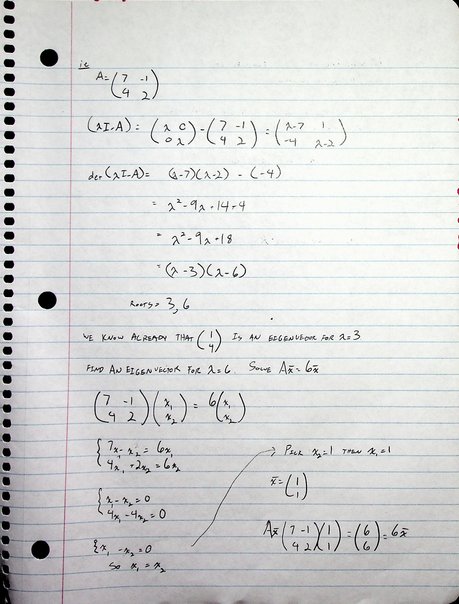 ie
A = (7 -1
4 2)
(λI-A) = (λ 0
0 λ) - (7 -1
4 2) = (λ-7 1
-4 λ-2)
det(λI-A) = (λ-7)(λ-2) - (-4)
= λ² - 9λ + 14 + 4
= λ² - 9λ + 18
= (λ-3)(λ-6)
ROOTS = 3, 6
WE KNOW ALREADY THAT (1
4) IS AN EIGENVECTOR FOR λ=3
FIND AN EIGENVECTOR FOR λ=6. SOLVE Ax̄ = 6x̄
(7 -1
4 2) (x₁
x₂) = 6 (x₁
x₂)
{ 7x₁ - x₂ = 6x₁
4x₁ + 2x₂ = 6x₂
{ x - x₂ = 0
4x₁ - 4x₂ = 0
{ x₁ - x₂ = 0
SO x₁ = x₂
; PICK x₂=1 THEN x₁=1
x̄ = (1
1)
Ax̄ (7 -1
4 2) (1
1) = (6
6) = 6x̄